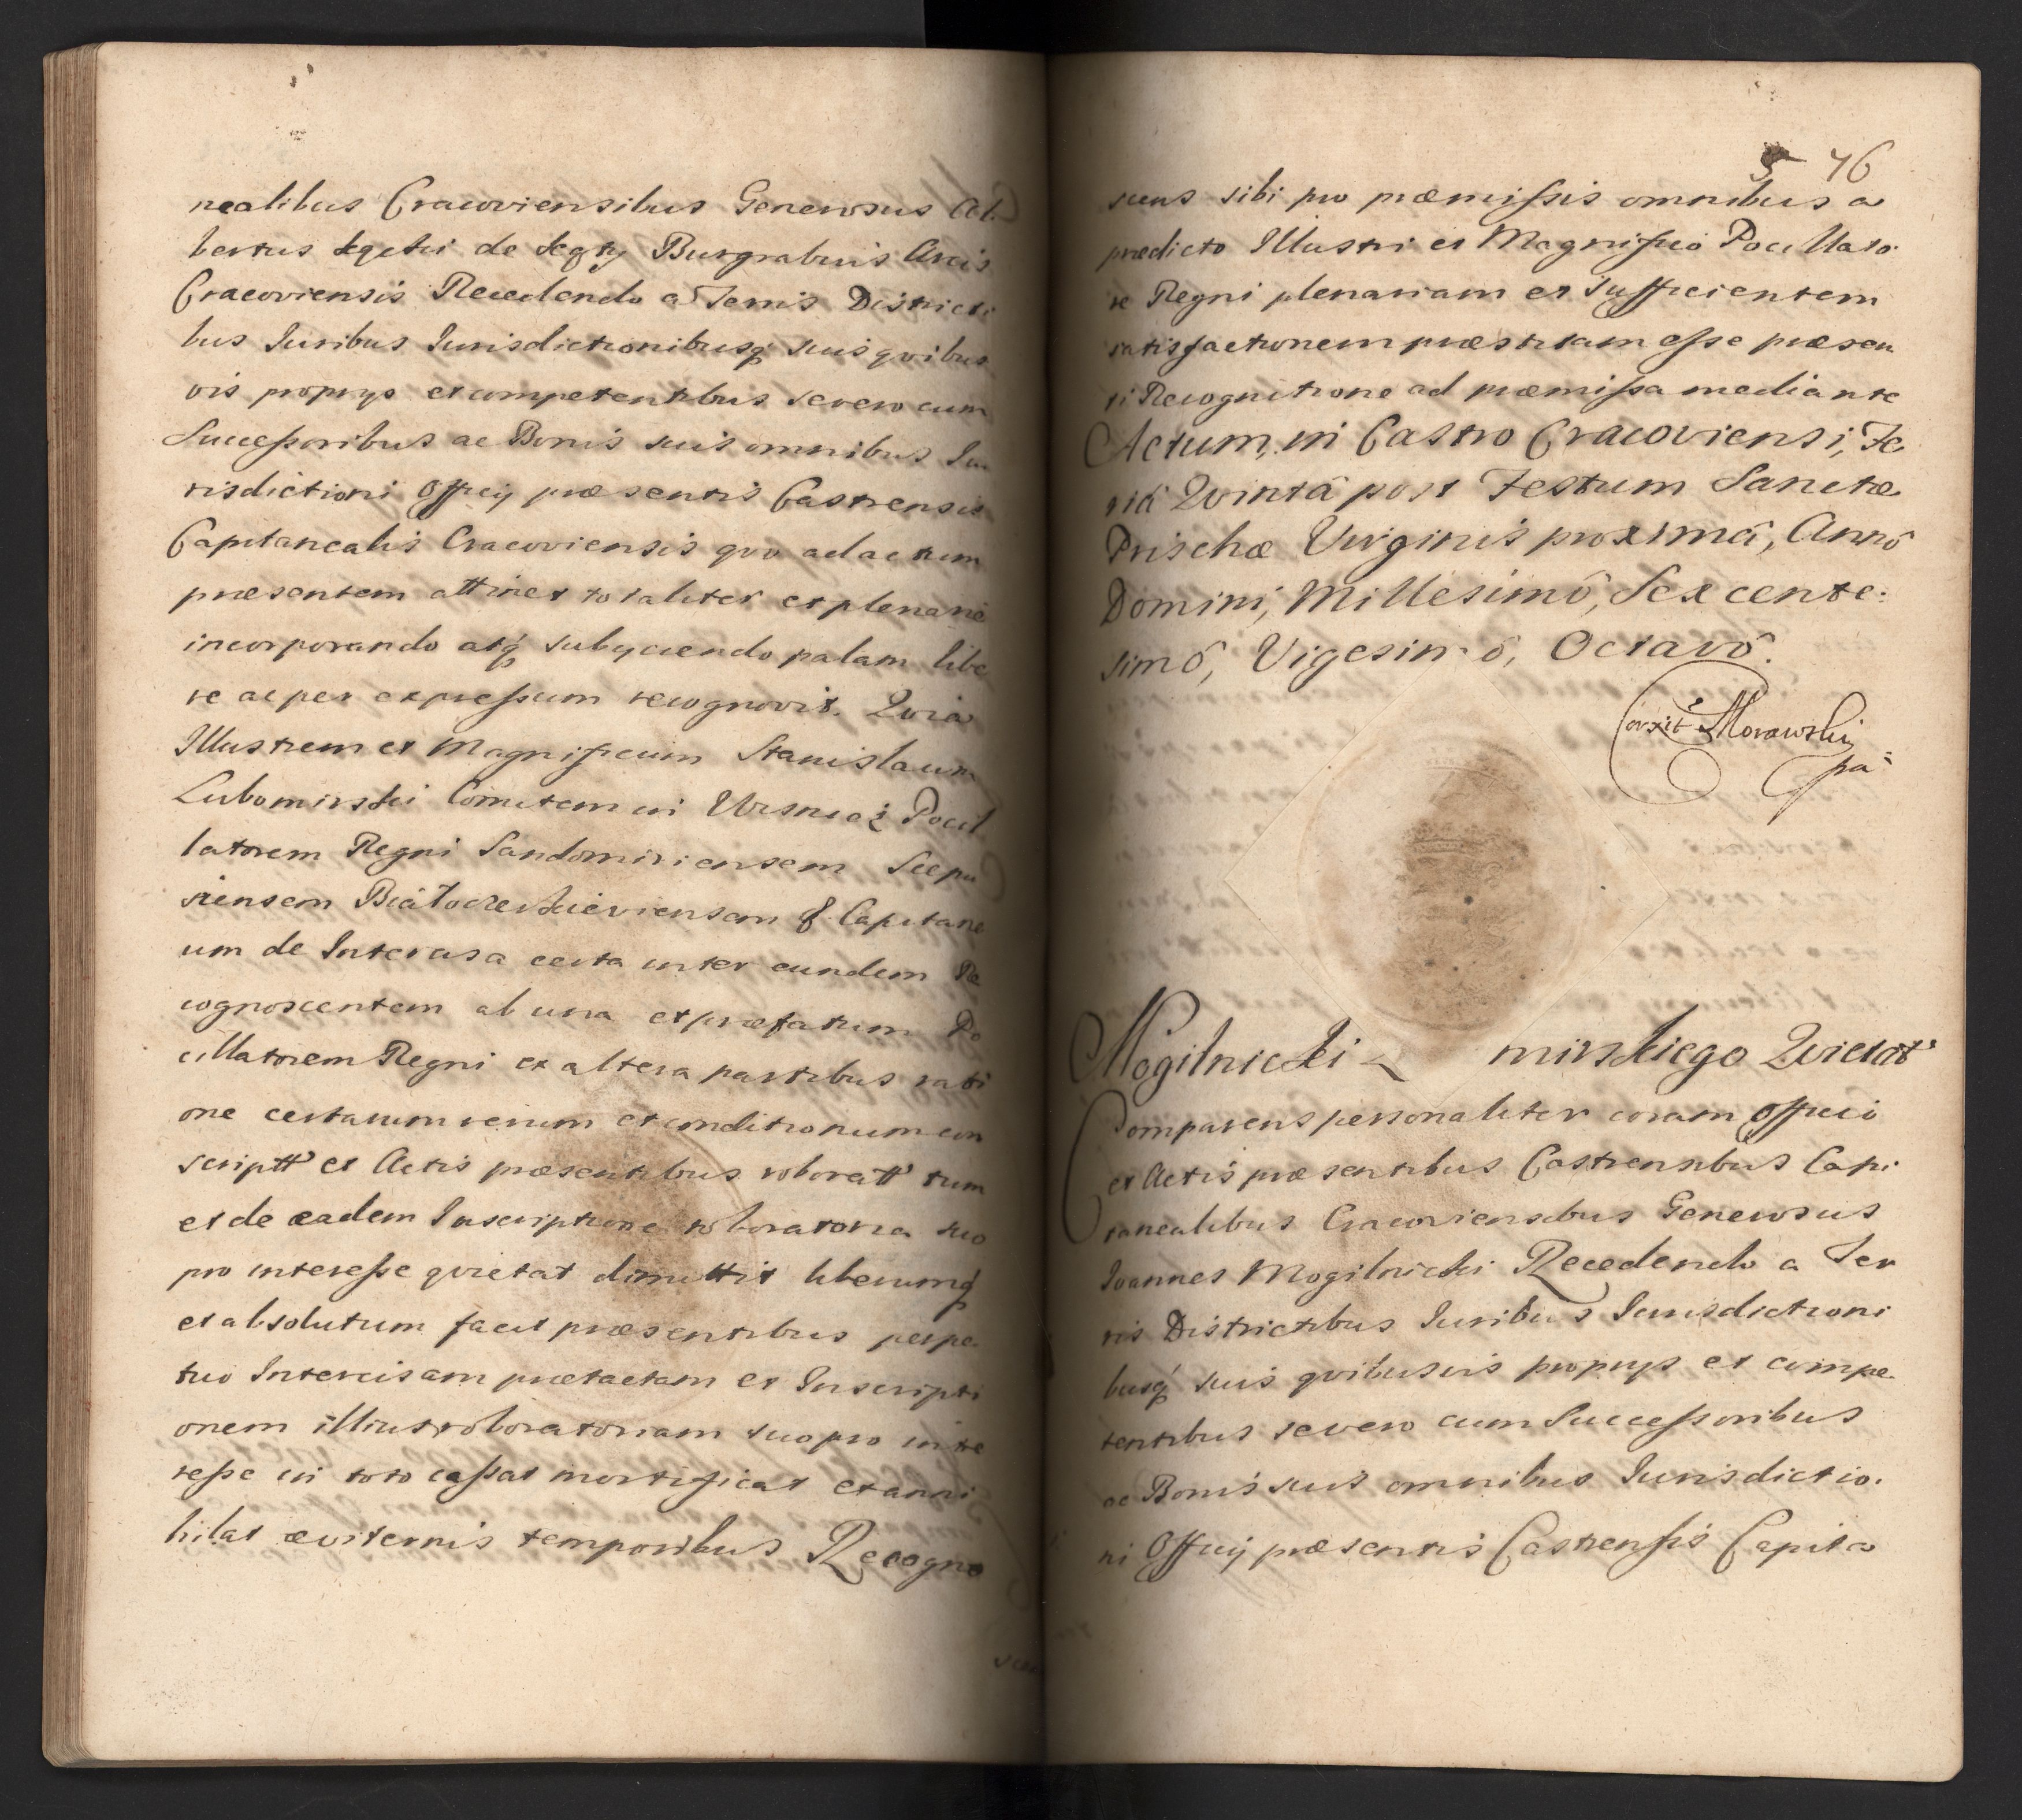 nealibus Cracoviensibus Generosus Al
bertus Segeski de Segty Burgrabius Arcis
Cracoviensis Recedendo a Terris Districti
bus Iuribus Iurisdictionibusq suis qvibus
vis proprys et competentibus se vero cum
Successoribus ac Bonis suis omnibus Iu
risdictioni Officij præsentis Castrensis
Capitanealis Cracoviensis qvo ad actum
præsentem attinet totaliter et plenarie
incorporando atq subyciendo palam libe
re ac per expressum recognovit. Qvia
Illustrem et Magnificum Stanislaum
Lubomirski Comitem in Wisnicz Pocil
latorem Regni Sandomiriensem Scepu
siensem Białocerkieviensem & Capitane
um de Intercisa certa inter eundem Re
cognoscentem ab una et præfatum Po
cillatorem Regni ex altera partibus rati
one certarum rerum et conditionum con
scriptt et Actis præsentibus roboratt tum
et de eadem Inscriptione roboratoria suo
pro interesse qvietat dimittit liberumq
et absolutum facit præsentibus perpe
tuo Intercisam prætactam et Inscripti
onem illius roboratoriam suo pro inte
resse in toto cassat mortificat et anni
hilat æviternis temporibus Recogno
76
scens sibi pro præmissis omnibus a
prædicto Illustri et Magnifico Pocillato
re Regni plenariam et sufficientem
satisfactionem præstitam esse præsen
ti Recognitione ad præmissa mediante
Actum, in Castro Cracoviensi, Fe
riâ Qvintâ post Festum Sanctæ
Prischæ Virginis proximâ, Annô
Domini, Millesimô, Sexcente:
simô, Vigesimô, Octavô.
Corxit Morawski
pa
Mogilnicki L mirskiego Qvietat
Comparens personaliter coram Officio
et Actis præsentibus Castrensibus Capi
tanealibus Cracoviensibus Generosus
Ioannes Mogilnicki Recedendo a Ter
ris Districtibus Iuribus Iurisdictioni
busq suis qvibusvis proprys et compe
tentibus se vero cum Successoribus
ac Bonis suis omnibus Iurisdictio.
ni Officij præsentis Castrensis Capita